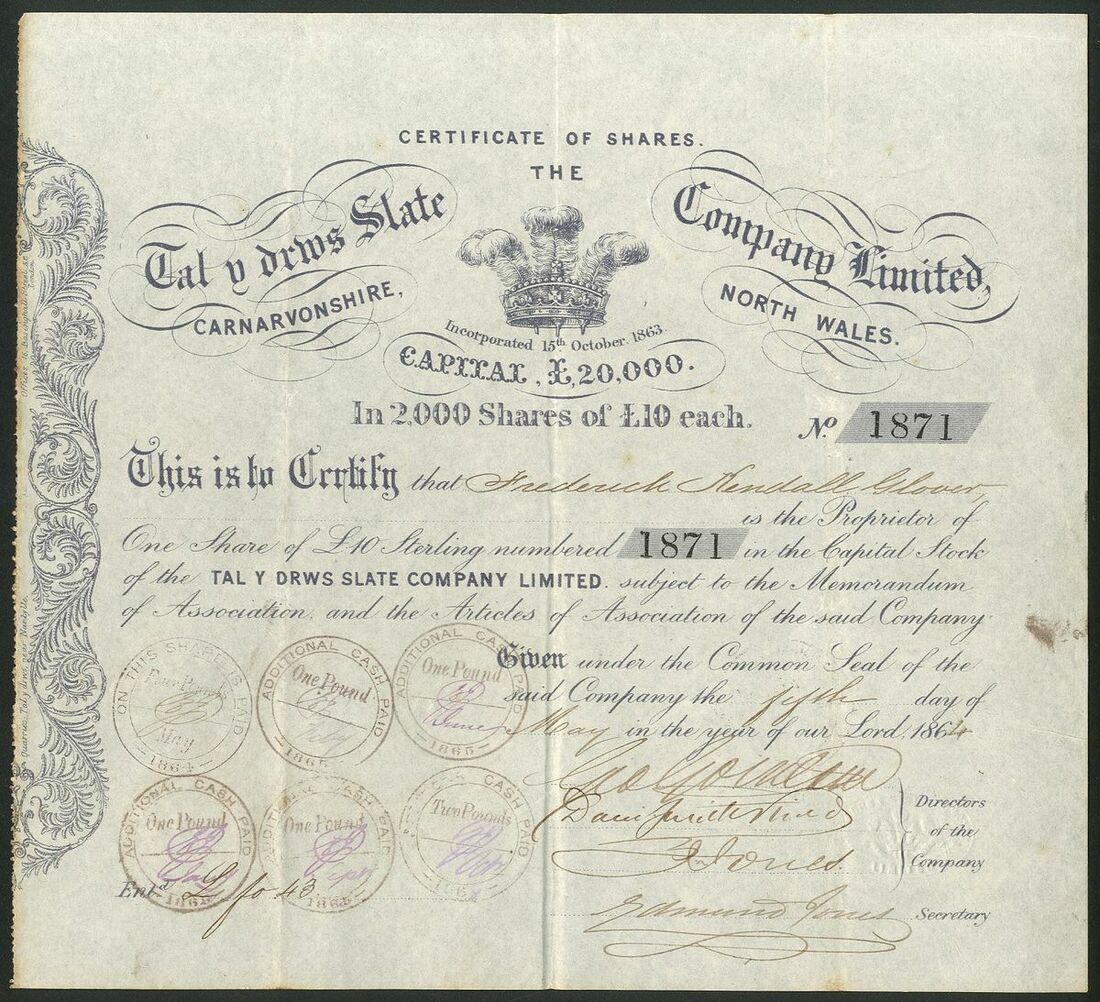 CERTIFICATE OF SHARES.
THE
Tal y drws Slate Company Limited,
CARNARVONSHIRE, NORTH WALES.
Incorporated 15th October 1863.
CAPITAL, £20,000.
In 2,000 Shares of £10 each.
No. 1871
This is to Certify that Frederick Kendall Glover,
is the Proprietor of
One Share of £10 Sterling numbered 1871 in the Capital Stock
of the TAL Y DRWS SLATE COMPANY LIMITED. subject to the Memorandum
of Association and the Articles of Association of the said Company
Given under the Common Seal of the
said Company the fifth day of
May in the year of our Lord 1864
Directors
of the
Company
J Jones.
Edmund Jones Secretary
ON THIS SHARE IS PAID
Four Pounds
May
1864
ADDITIONAL CASH PAID
One Pound
ADDITIONAL CASH PAID
One Pound
1865
ADDITIONAL CASH PAID
One Pound
ADDITIONAL CASH PAID
One Pound
Sept
CASH PAID
Two Pounds
Entd fo 43
London